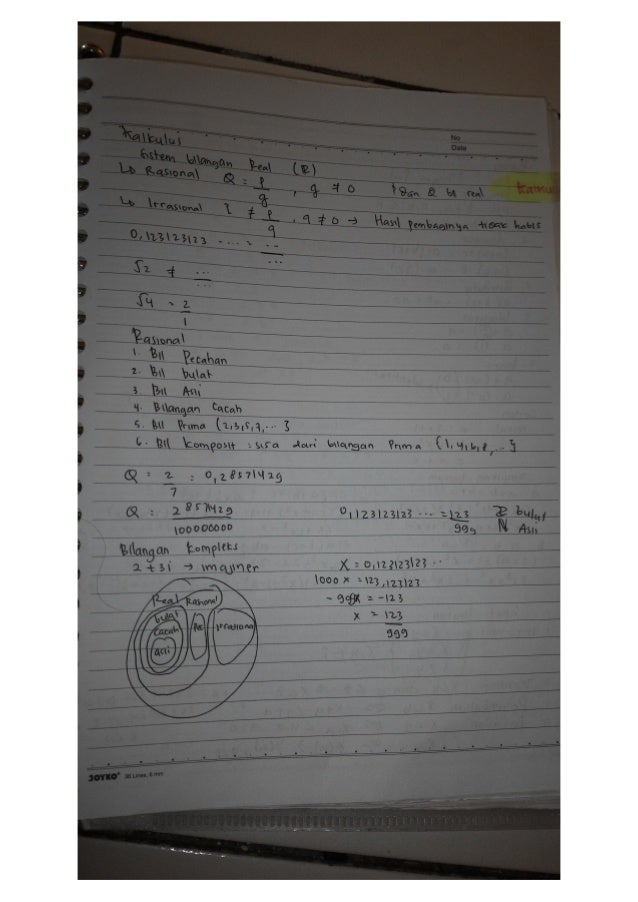 Kalkulus
No
Date
Sistem bilangan Real (R)
Rasional Q = p/q , q ≠ 0
real
Irrasional I ≠ p/q , q ≠ 0 → Hasil pembaginya tidak habis
0,123123123 .... = ... / ...
√2 ≠ ... / ...
√4 = 2/1
Rasional
1. Bil Pecahan
2. Bil bulat
3. Bil Asli
4. Bilangan Cacah
5. Bil Prima {2,3,5,7,... }
6. Bil komposit : sisa dari bilangan Prima {1,4,6,8,...}
Q = 2/7 = 0,28571429
Q = 28571429/100000000
0,123123123 ... = 123/999
Z bulat
N Asli
Bilangan Kompleks
2 + 3i → imajiner
X = 0,123123123 ..
1000 x = 123,123123
- 999x = -123
x = 123/999
Real
Rasional
bulat
Cacah
asli
irrasional
JOYKO 36 Lines, 6 mm